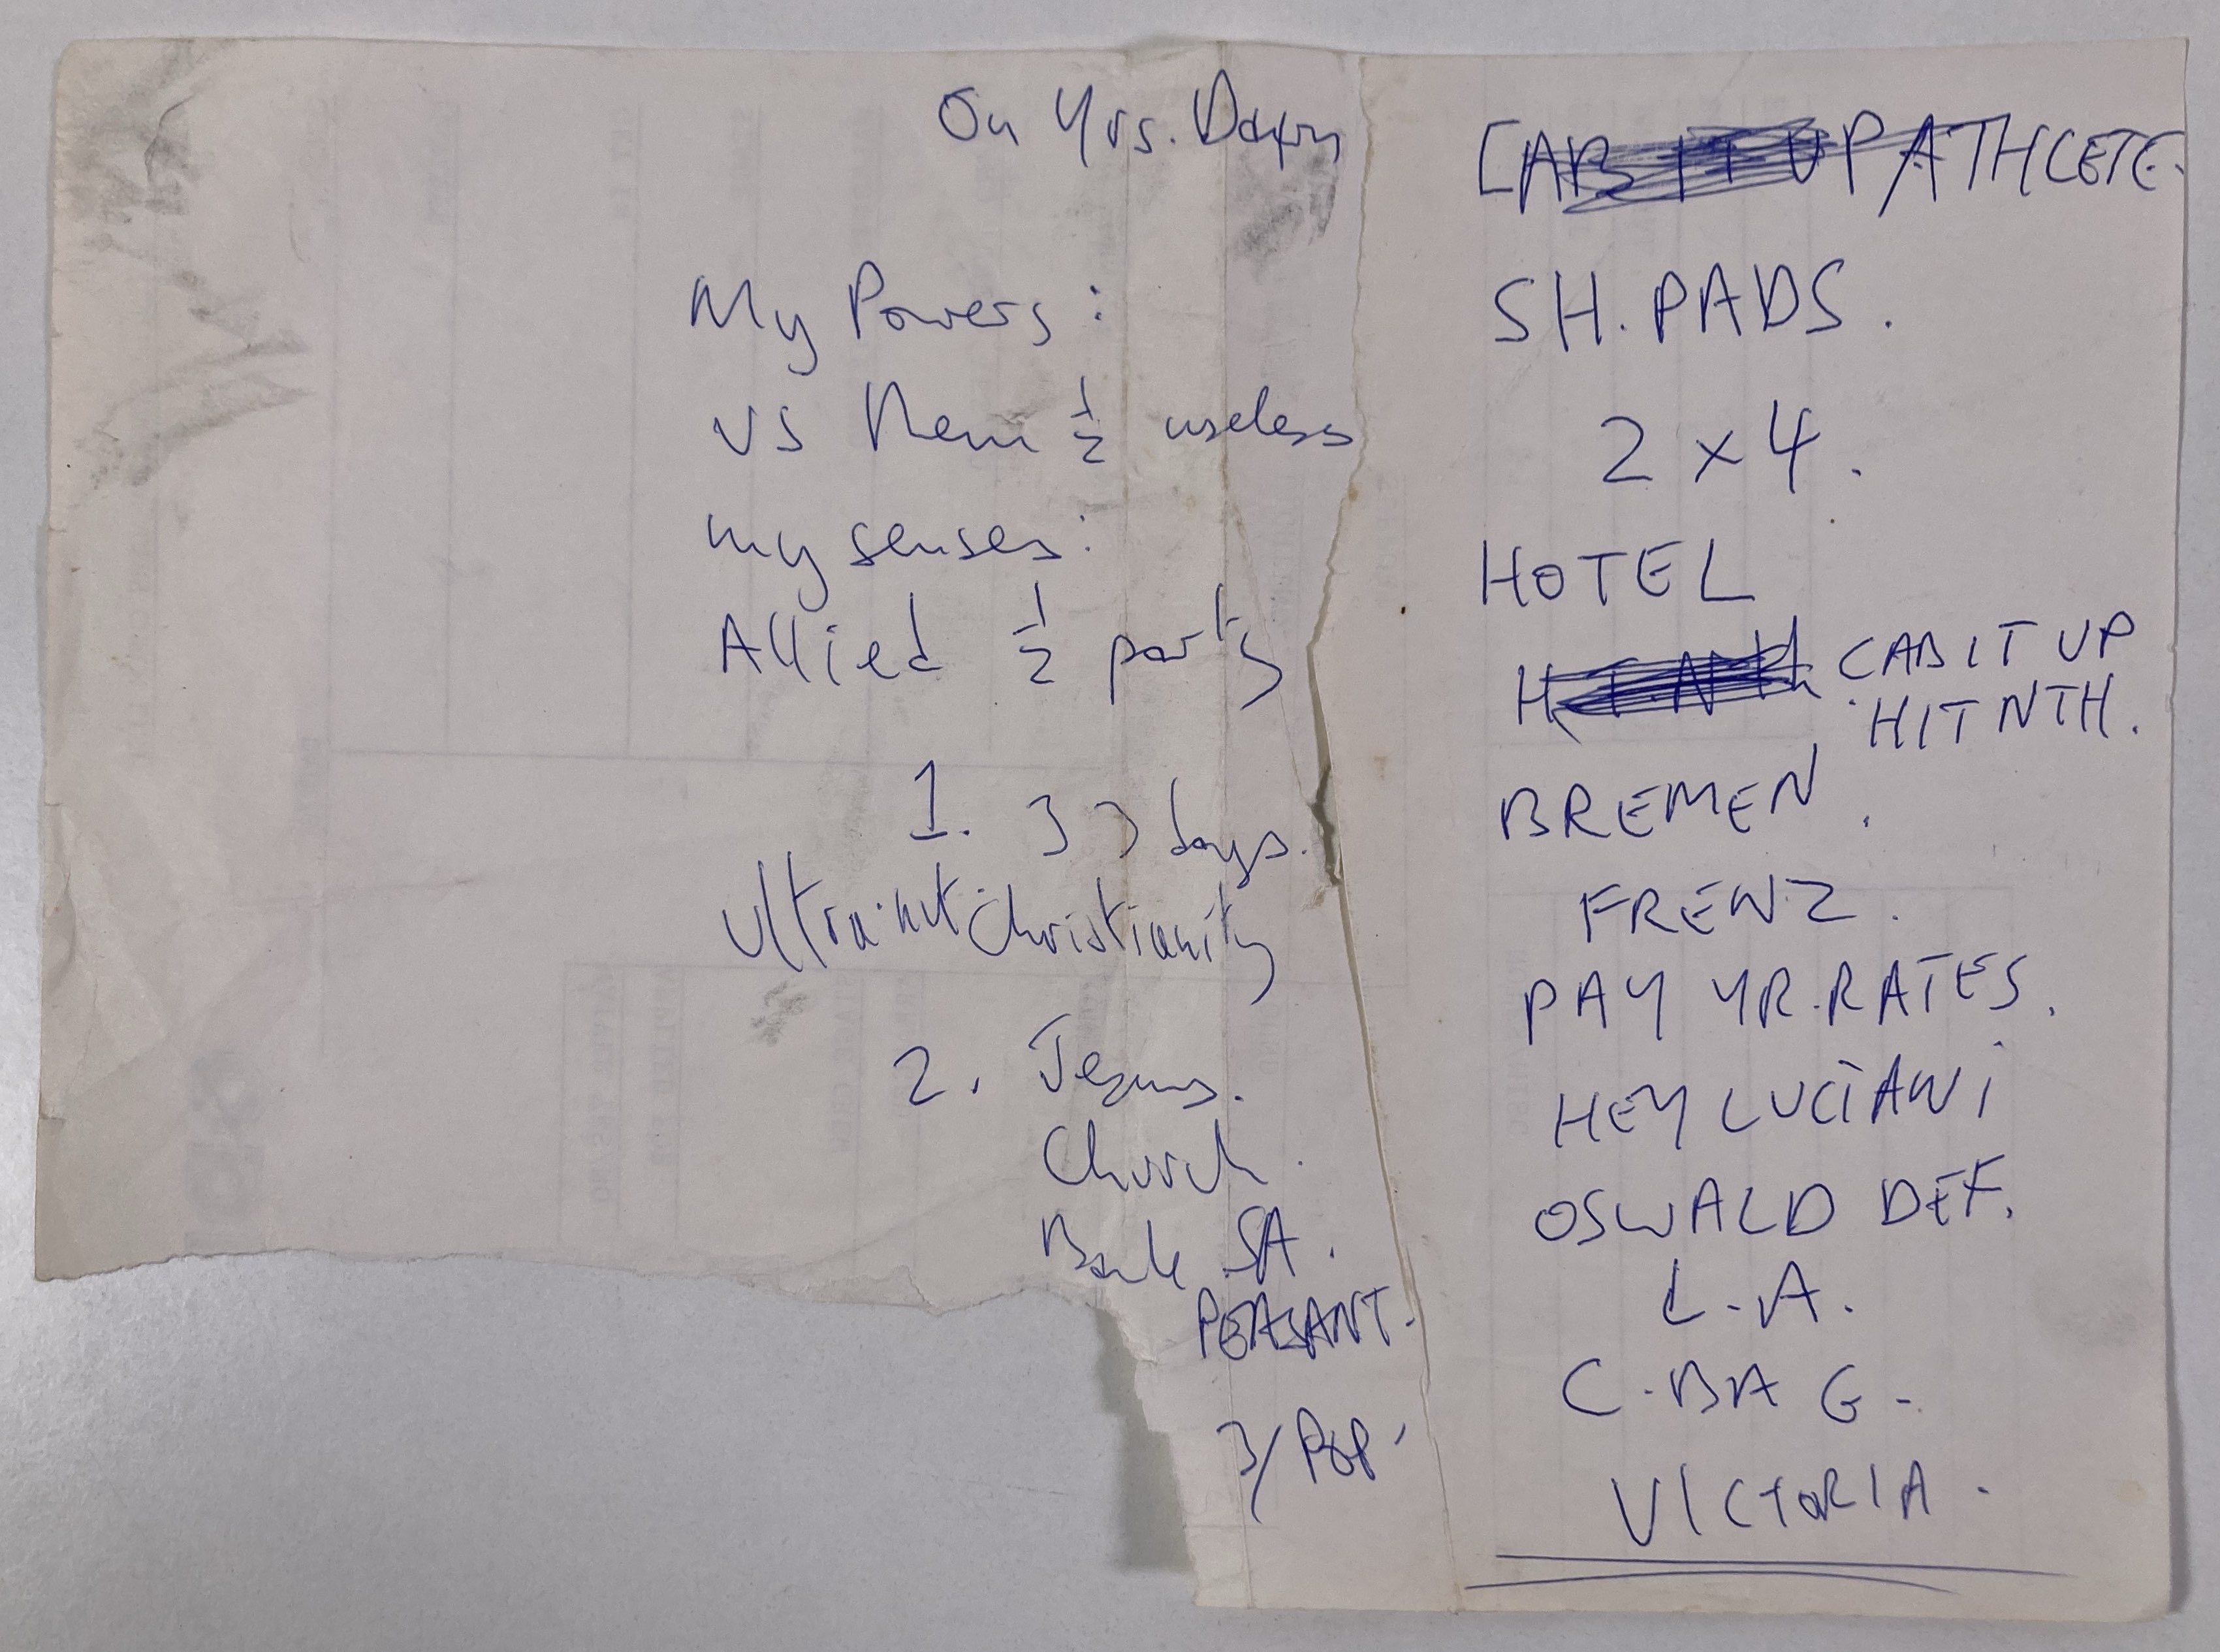 On Yrs. Down
My Powers:
VS Them ½ useless
my senses:
Allied ½ party
1. 33 days.
Ultra·nut Christianity
2. Jesus.
Church.
Bank SA.
PEASANT.
3/ POP.
CAB IT UP ATHLETE.
SH. PADS.
2 x 4.
HOTEL
H.T.NTH CAB IT UP
HIT NTH.
BREMEN.
FRENZ.
PAY YR. RATES.
HEY LUCIANI
OSWALD DEF.
L.A.
C.BAG-
VICTORIA.